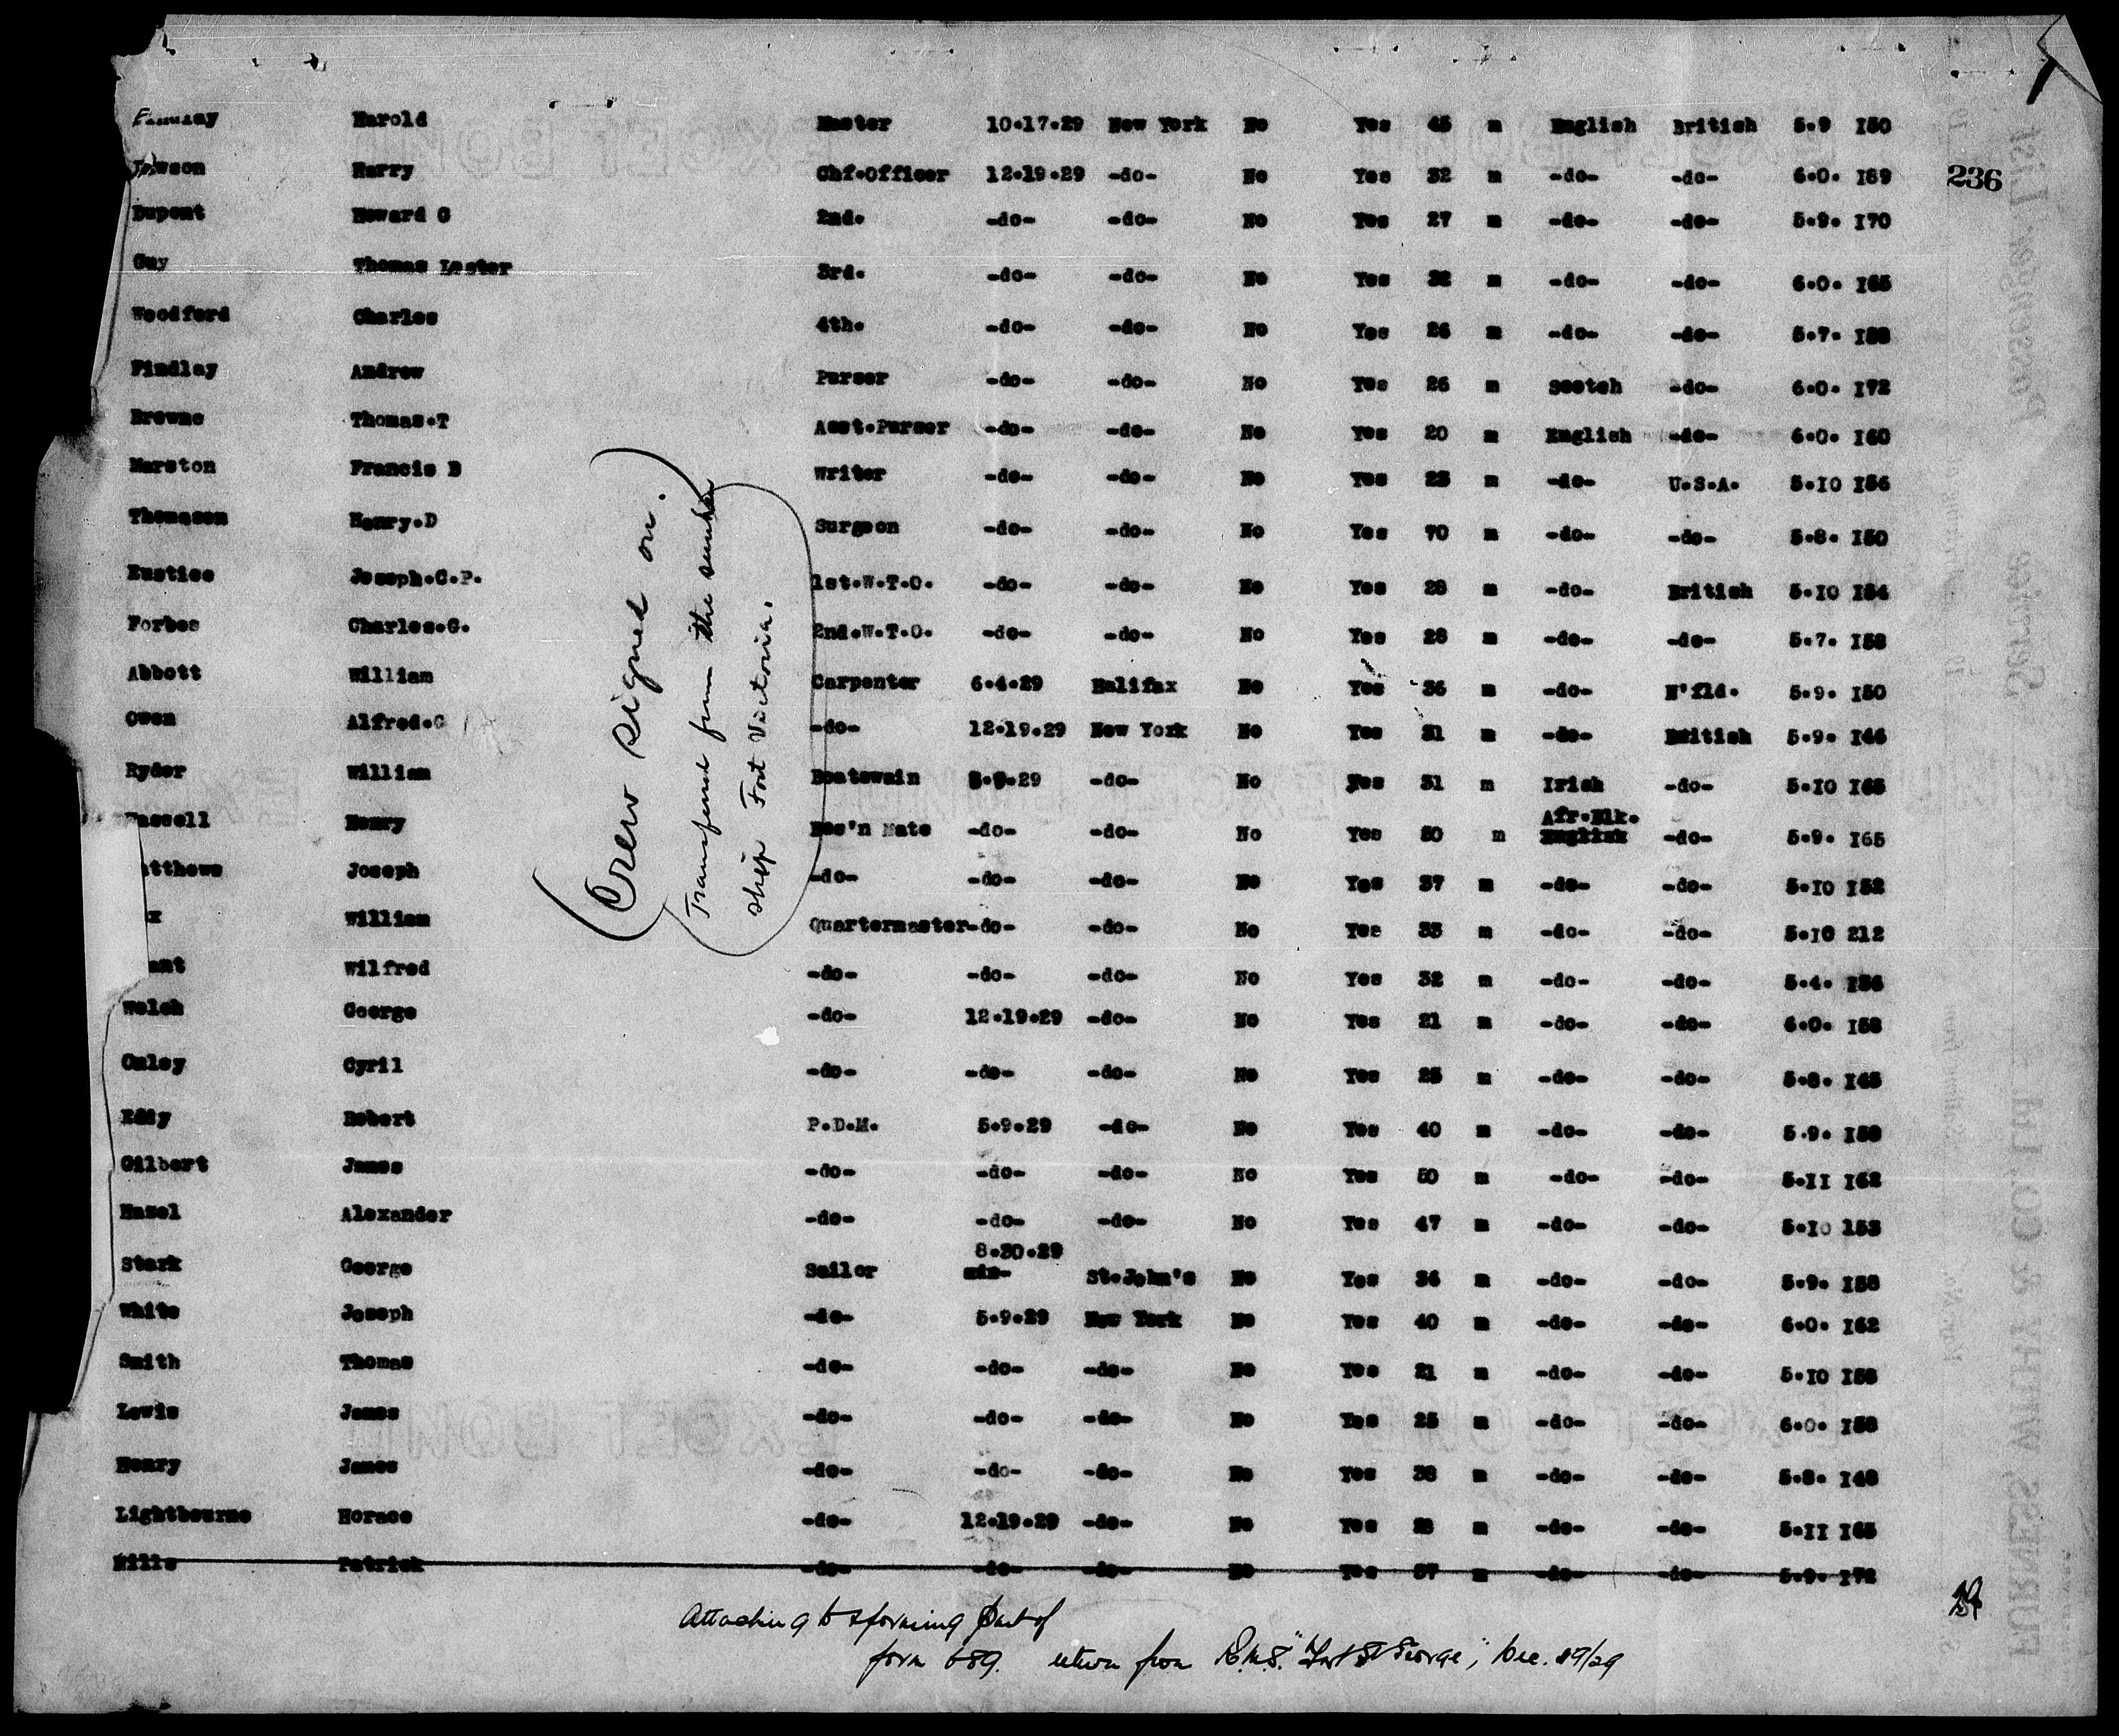 Harold Master 10.17.29 New York No Yes 45 m English British 5.9 I50
Harry Chf.Officer 12.19.29 -do- No Yes 32 m -do- -do- 6.0. I89
236
Dupont Howard G 2nd. -do- -do- No Yes 27 m -do- -do- 5.9. I70
Guy Thomas Lester 3rd. -do- -do- No Yes 32 m -do- -do- 6.0. I65
Woodford Charles 4th. -do- -do- No Yes 26 m -do- -do- 5.7.
Findlay Andrew Purser -do- -do- No Yes 26 m Scotch -do- 6.0. I72
Browne Thomas.T Asst.Purser -do- -do- No Yes 20 m English -do- 6.0. I60
Marston Francis B Writer -do- -do- No Yes m -do- U.S.A. 5.10 I56
Thomason Henry.D Surgeon -do- -do- No Yes 70 m -do- -do- 5.8. I50
Eustice Joseph.C.P. 1st.W.T.O. -do- -do- No Yes 28 m -do- British 5.10 I54
Forbes Charles.G. 2nd.W.T.O. -do- -do- No Yes 28 m -do- -do- 5.7. I58
Abbott William Carpenter 6.4.29 Halifax No Yes 36 m -do- N'fld. 5.9. I50
Owen Alfred.G -do- 12.19.29 New York No Yes 31 m -do- British 5.9. I46
Ryder William Boatswain 29 -do- No Yes 31 m Irish -do- 5.10 I65
Afr.Blk.
Henry Bos'n Mate -do- -do- No Yes 50 m English -do- 5.9. I65
atthews Joseph -do- -do- -do- No Yes 37 m -do- -do- 5.10 I52
x William Quartermaster -do- -do- No Yes 33 m -do- -do- 5.10 212
ant Wilfred -do- -do- -do- No Yes 32 m -do- -do- 5.4. I56
Welch George -do- 12.19.29 -do- No Yes 21 m -do- -do- 6.0. I58
Oxley Cyril -do- -do- -do- No Yes 25 m -do- -do- 5.8. I45
Eddy Robert P.D.M. 5.9.29 -do- No Yes 40 m -do- -do- 5.9.
Gilbert James -do- -do- -do- No Yes 50 m -do- -do- 5.11 I62
Hazel Alexander -do- -do- -do- No Yes 47 m -do- -do- 5.10 153
8.30.29
Stark George Sailor St.John's No Yes 36 m -do- -do- 5.9. I58
White Joseph -do- 5.9.29 New York No Yes 40 m -do- -do- 6.0. I62
Smith Thomas -do- -do- -do- No Yes 21 m -do- -do- 5.10 I58
Lewis James -do- -do- -do- No Yes 25 m -do- -do- 6.0. I58
Henry James -do- -do- -do- No Yes 38 m -do- -do- 5.8. I48
Lightbourne Horace -do- 12.19.29 -do- No Yes m -do- -do- 5.11 I65
Mills Patrick -do- -do- -do- No Yes 37 m -do- -do- 5.9. I72
Crew signed on.
Transferred from the sunken
ship Fort Victoria.
Attaching to & forming part of
form 689. return from "Fort St George", Dec. /29
EXCEL BOND
FURNESS, WITHY & CO., Ltd.
Passenger List
Service